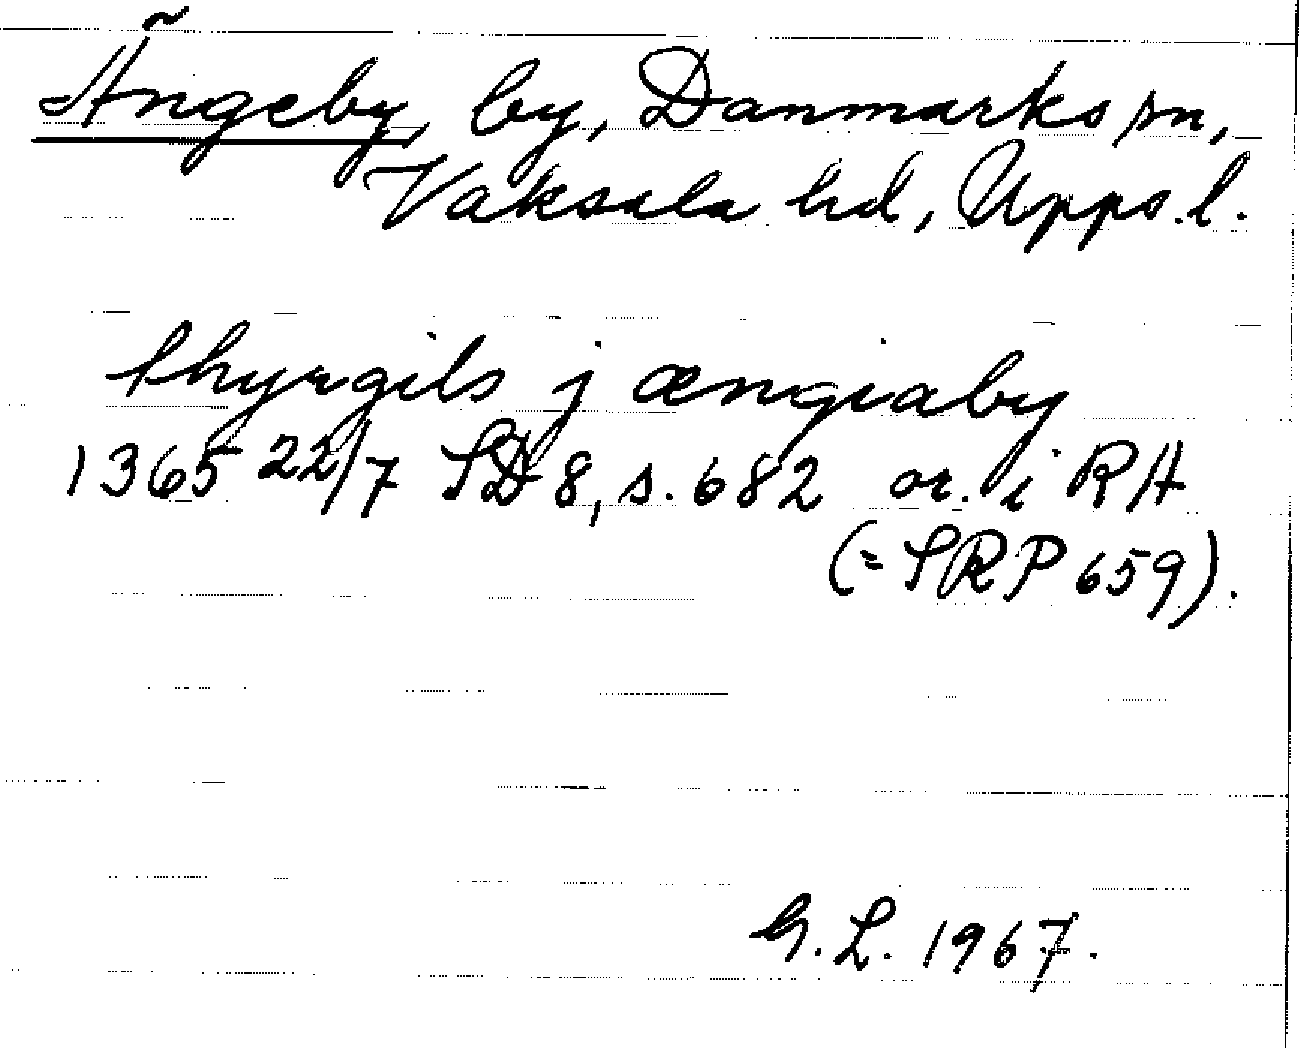 Ängeby, by, Danmarks sn,
Vaksala hd, Upps. l.
thyrgils j ængiaby
1365 22/7 SD 8, s. 682 or. i RA
(= SRP 659).
G. L. 1967.